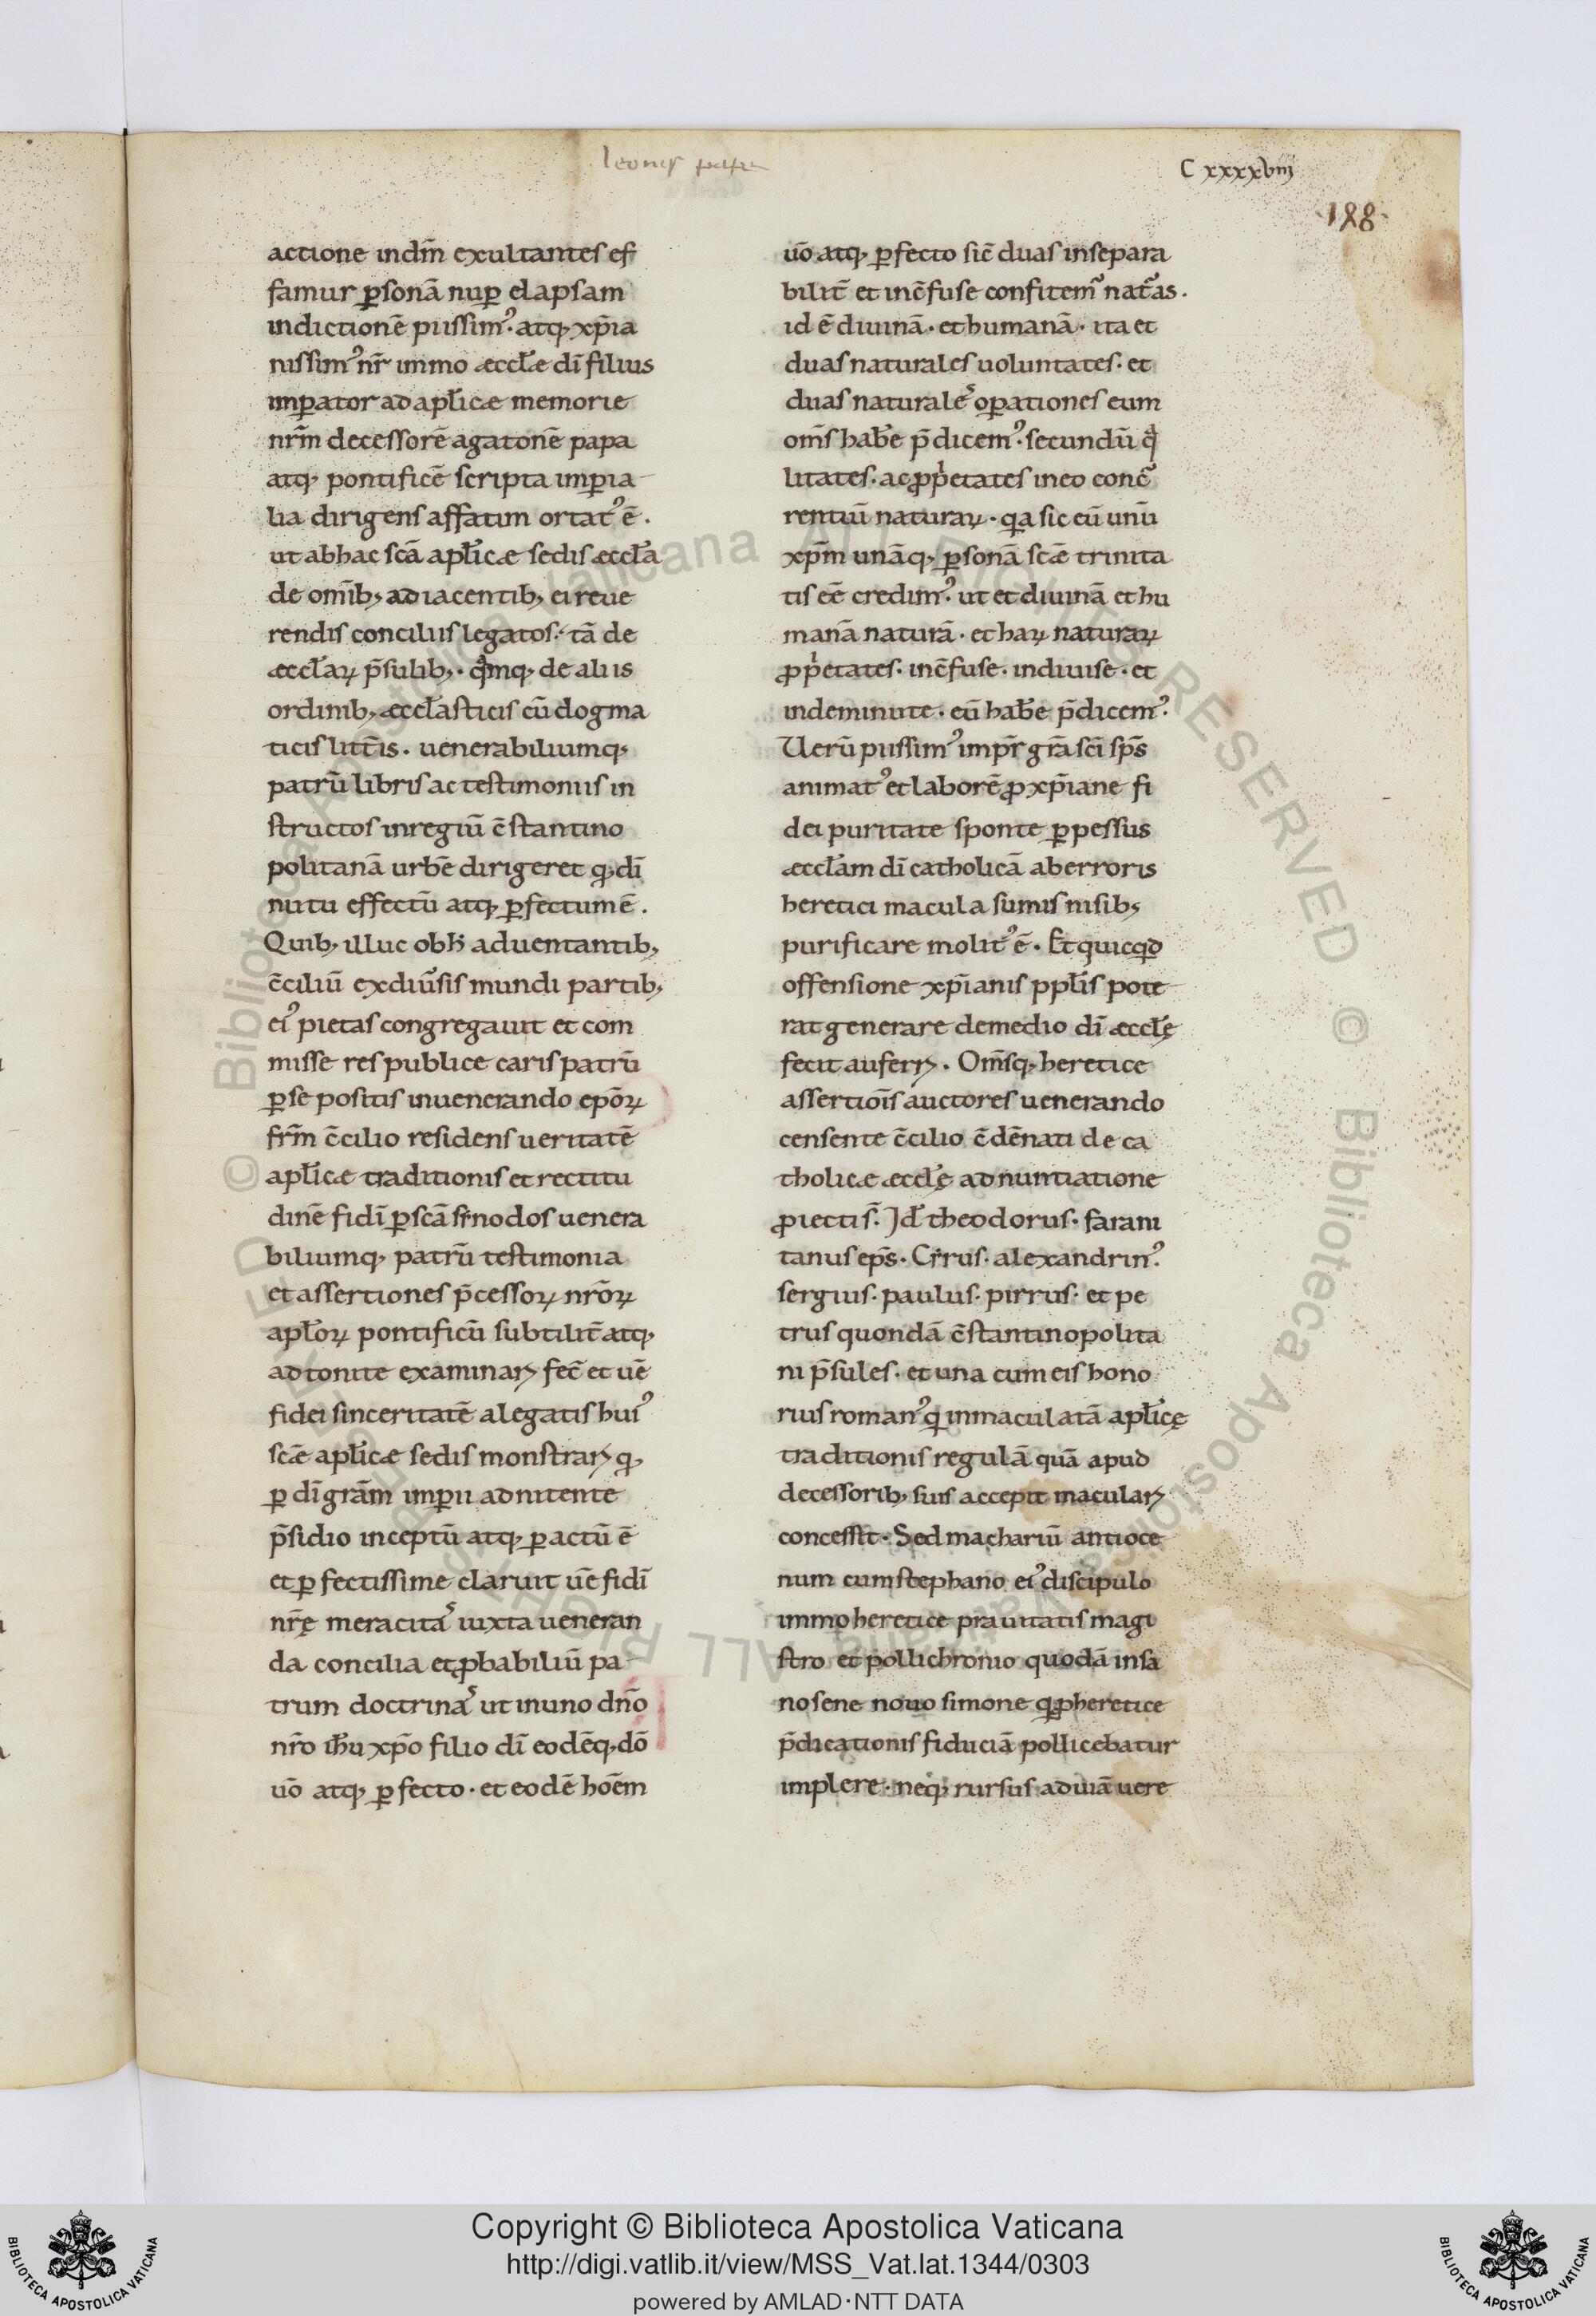 leonis pape
C xxxxviij
188
actione indm̄ exultantes ef
famur ꝑsonā nuꝑ elapsam
indictionē piissimꝰ· atq; xp̄ia
nissimꝰ nr̄ immo æccl̄æ dī filius
imꝑator ad apl̄icæ memorie
nr̄m decessorē agatonē papa
atq; pontificē scripta imꝑia
lia dirigens affatim ortatꝰ ē.
ut abhac scā apl̄icæ sedis æccl̄a
de om̄ib; adiacentib; ei reue
rendis conciliis legatos· tā de
æccl̄aꝝ p̄sulib;· qͣmq; de aliis
ordinib; æccl̄asticis cū dogma
ticis litt̄is. uenerabiliumq;
patrū libris ac testimoniis in
structos inregiū c̄stantino
politanā urbē dirigeret q; dī
nutu effectū atq; ꝑfectum ē.
Quib; illuc obh̄ aduentantib;
c̄ciliū exdiūsis mundi partib;
eiꝰ pietas congregauit et com
misse res publice caris patrū
ꝑse positis inuenerando ep̄oꝝ
fr̄m c̄cilio residens ueritatē
apl̄icæ traditionis et rectitu
dinē fidī ꝑscā sȳnodos uenera
biliumq; patrū testimonia
et assertiones p̄cessoꝝ nr̄oꝝ
apl̄oꝝ pontificū subtilit̄ atq;
adtonite examinar̄ fec̄ et uē
fidei sinceritatē alegatis huiꝰ
scæ apl̄icæ sedis monstrar̄ q;
ꝑ dī grām imꝑii adnitente
p̄sidio inceptū atq; ꝑactū ē
et ꝑfectissime claruit uē fidī
nr̄ę meracitaˢ iuxta ueneran
da concilia et ꝓbabiliū pa
trum doctrinaˢ ut inuno dn̄o
nr̄o ih̄u xp̄o filio dī eodēq; dō
uō atq; ꝑfecto· et eodē hoēm
uō atq; ꝑfecto sic̄ duas insepara
bilit̄ et inc̄fuse confitemꝰ nat̄as.
id ē diuinā· et humanā· ita et
duas naturales uoluntates· et
duas naturaleˢ oꝑationes eum
om̄s hab̄e p̄dicemꝰ· secundū qͣ
litates· ac ꝓpⁱetates ineo conc̄
rentiū naturaꝝ· qͥa sic eū unū
xp̄m unāq; ꝑsonā scæ trinita
tis eē credimꝰ· ut et diuinā et hu
manā naturā· et haꝝ naturaꝝ
ꝓpⁱetates· inc̄fuse· indiuise· et
indeminute· eū hab̄e p̄dicemꝰ·
Uerū piissimꝰ imp̄r grā scī sp̄s
animatꝰ et laborē ꝓ xp̄iane fi
dei puritate sponte ꝑpessus
æccl̄am dī catholicā aberroris
heretici macula sumis nisib;
purificare molitꝰ ē· Et quicqͥd
offensione xp̄ianis ppl̄is pote
rat generare demedio dī æccl̄ę
fecit auferr̄· Om̄sq; heretice
assertiōis auctores uenerando
censente c̄cilio c̄dēnati de ca
tholicæ æccl̄ę adnuntiatione
ꝓiecti s̄· Id̄ theodorus· farani
tanus ep̄s· Cẏrus· alexandrinꝰ·
sergius· paulus· pirrus· et pe
trus quondā c̄stantinopolita
ni p̄sules· et una cum eis hono
rius romanꝰ qͥ inmaculatā apl̄icę
traditionis regulā quā apud
decessorib; suis accepit macular̄
concessit· Sed machariū antioce
num cum stephano eiꝰ discipulo
immo heretice prauitatis magi
stro et pollichronio quodā insa
no sene nouo simone qͥ ꝓ heretice
p̄dicationis fiduciā pollicebatur
implere· neq; rursus ad uiā uere
Copyright © Biblioteca Apostolica Vaticana
http://digi.vatlib.it/view/MSS_Vat.lat.1344/0303
powered by AMLAD·NTT DATA